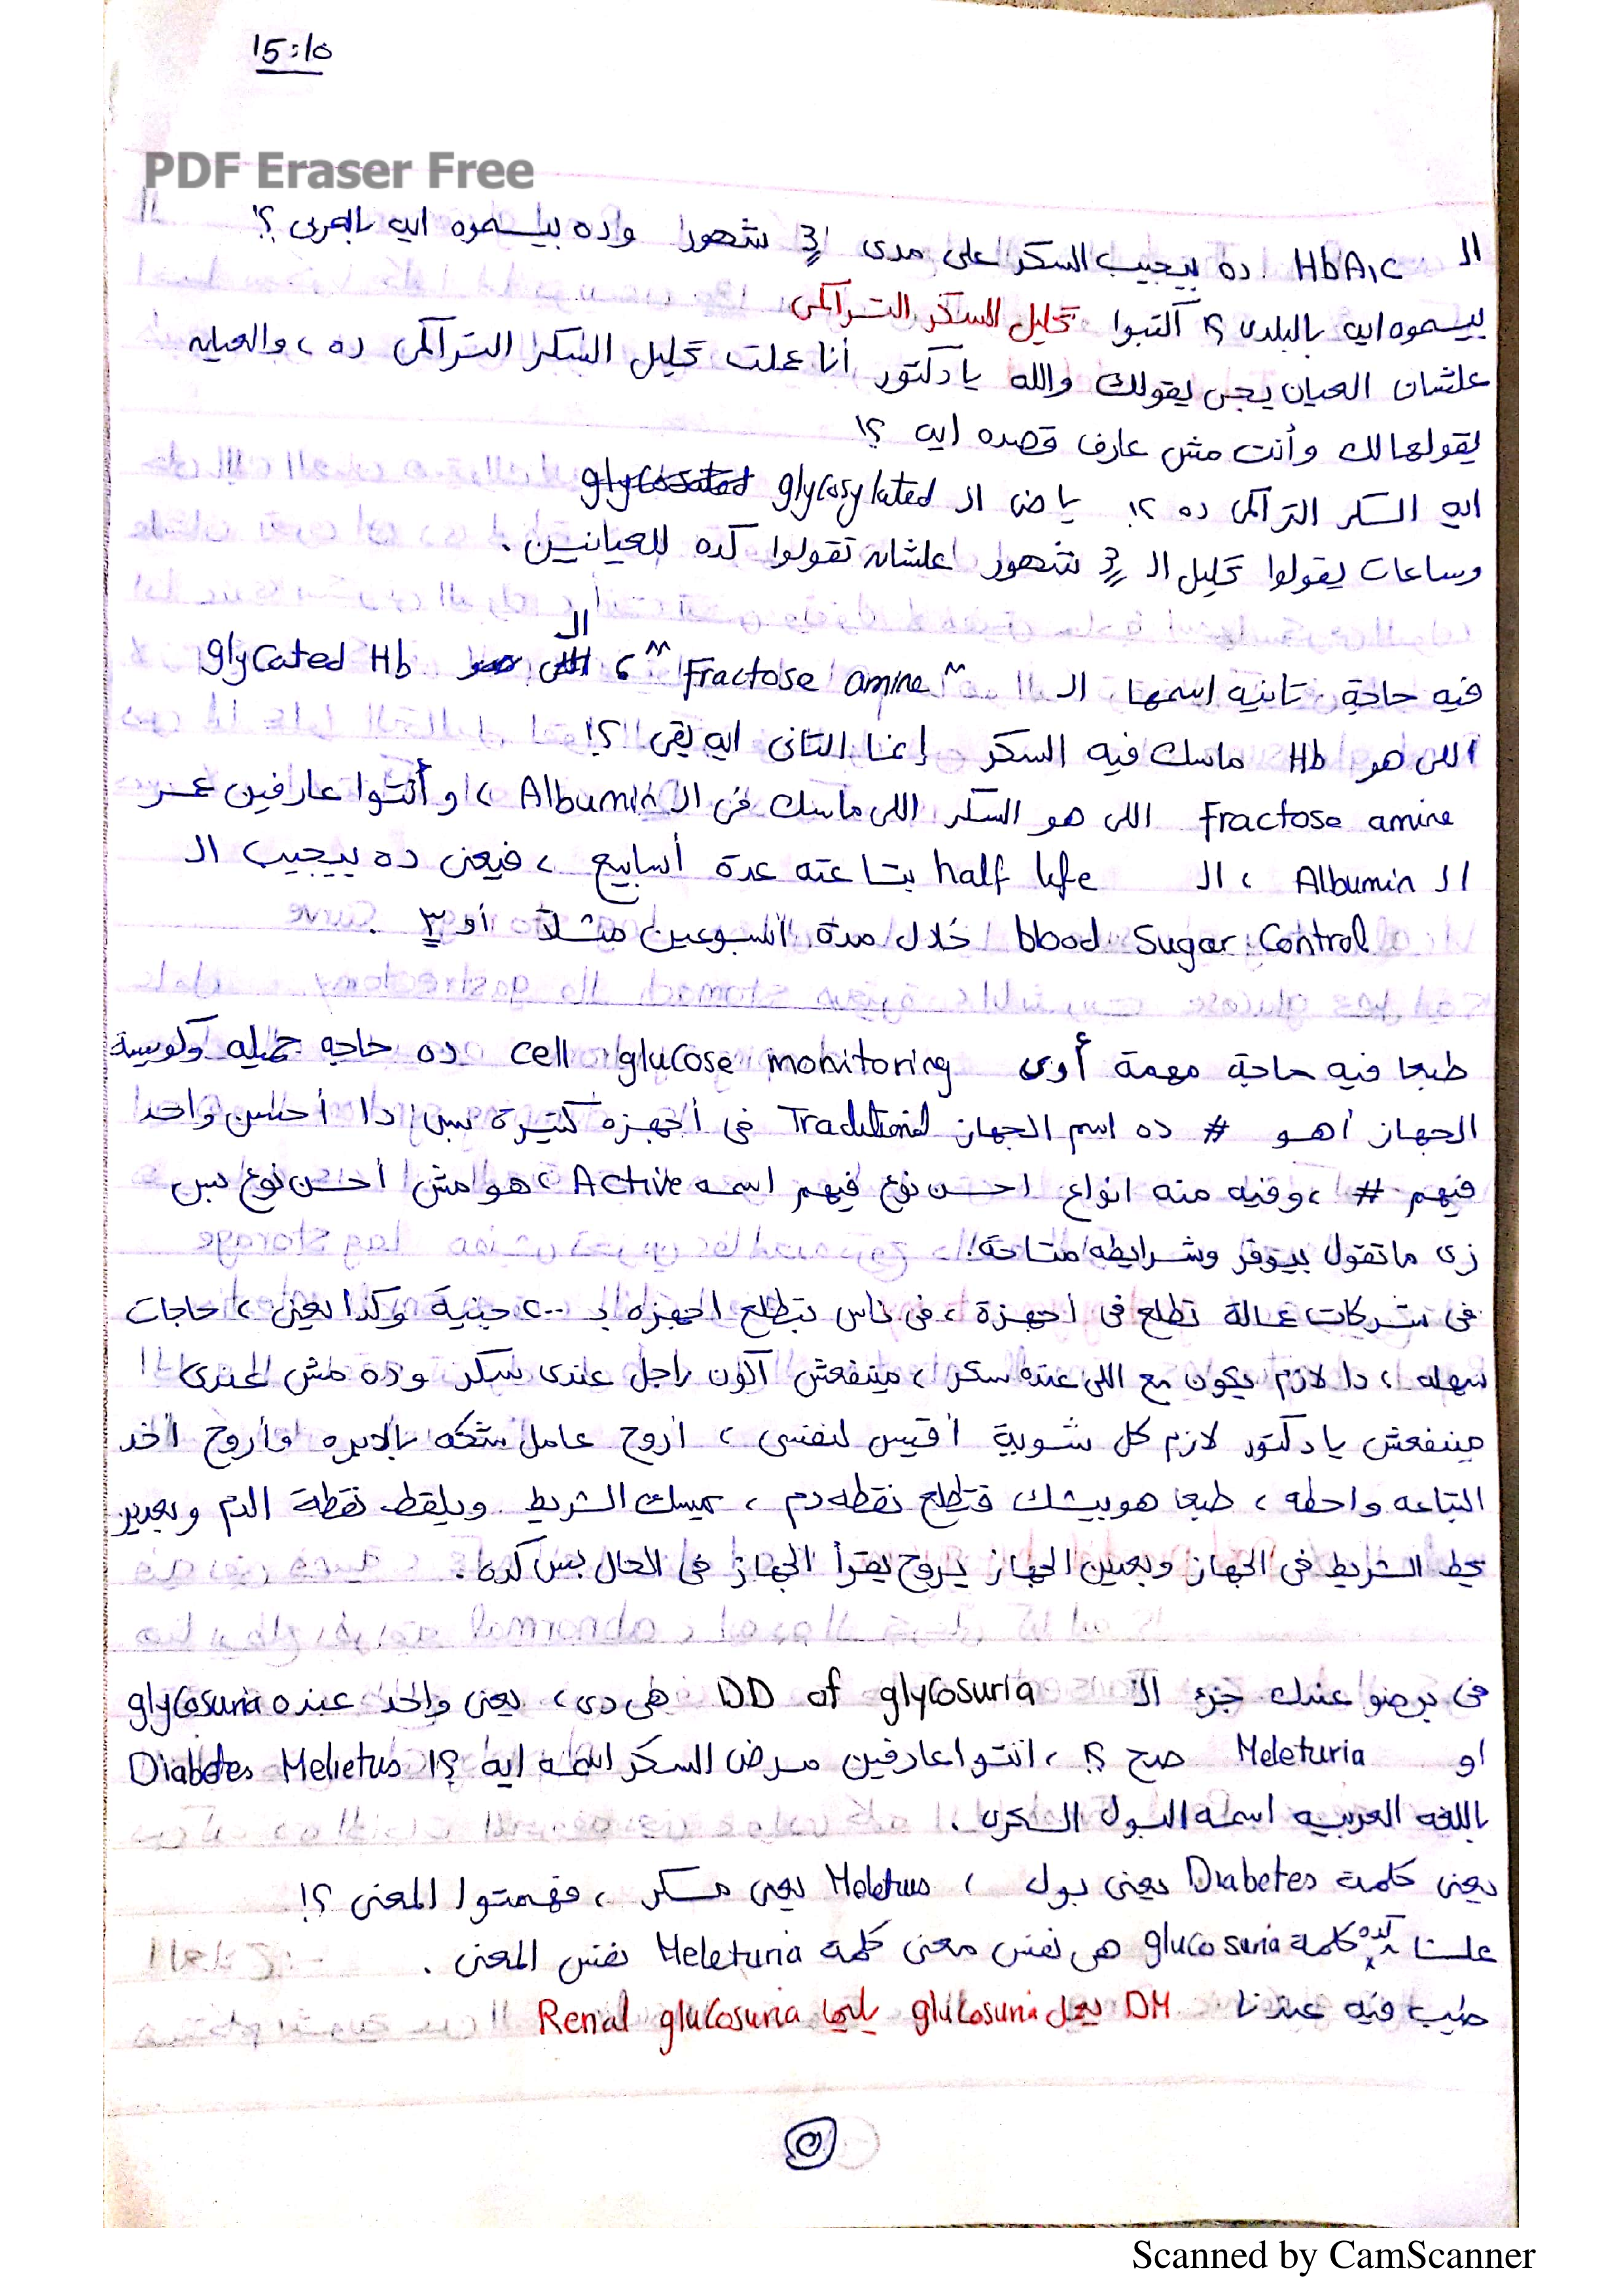 15:10
PDF Eraser Free
الـ HbA1c ده بيجيب السكر على مدى 3 شهور وده بيسموه ايه بالعربى ؟!
بيسموه ايه بالبلدى ؟! اكتبوا تحليل السكر التراكمى
علشان العيان يجى يقولك والله يا دكتور أنا عملت تحليل السكر التراكمى ده ، والعيان
يقولهالك وأنت مش عارف قصده ايه ؟!
ايه السكر التراكمى ده ؟! ياض الـ glycosylated
وساعات يقولوا تحليل الـ 3 شهور علشان تقولوا كده للعيانين .
فيه حاجة تانيه اسمها الـ "Fractose amine" ، الـ glycated Hb
اللى هو Hb ماسك فيه السكر إنما التانى ايه بقى ؟!
Fractose amine اللى هو السكر اللى ماسك فى الـ Albumin ، وأنتوا عارفين عمر
الـ Albumin ، الـ half life بتاعته عدة أسابيع ، فيعنى ده بيجيب الـ
blood Sugar Control خلال مدة اسبوعين مثلاً أو ٣ .
طبعا فيه حاجة مهمة أوى cell glucose monitoring ده حاجه جميله وكويسة
الجهاز أهو # ده اسم الجهاز Traditional فى أجهزه كتيرة بس دا أحسن واحد
فيهم # ، وفيه منه انواع احسن نوع فيهم اسمه Active ، هو مش أحسن نوع بس
زى ما تقول بيوفر وشرايطه متاحة .
فى شركات عمالة تطلع فى أجهزة ، فى ناس بتطلع اجهزه بـ ٢٠٠ جنية وكدا يعنى ، حاجات
سهله ، دا لازم يكون مع اللى عنده سكر ، مينفعش أكون راجل عندى سكر وده مش عندى !
مينفعش يا دكتور لازم كل شوية أقيس لنفسى ، أروح عامل شكه بالابره وأروح أخد
البتاعه واحطه ، طبعا هو بيشك فتطلع نقطه دم ، يمسك الشريط ويلقط نقطة الدم وبعدين
يحط الشريط فى الجهاز وبعدين الجهاز يروح يقرأ الجهاز فى الحال بس كده .
فى برضو عندك جزء الـ DD of glycosuria هى دى ، يعنى واحد عنده glycosuria
او Meleturia صح ؟! ، انتوا عارفين مرض السكر اسمه ايه ؟! Diabetes Melietus
باللغه العربيه اسمه البول السكرى .
يعنى كلمة Diabetes يعنى بول ، Meletus يعنى مسكر ، فهمتوا المعنى ؟!
علشا كده كلمة glucosuria هى نفس معنى كلمة Meleturia نفس المعنى .
طيب فيه عندنا DM يعمل glucosuria يليها Renal glucosuria
٥
Scanned by CamScanner